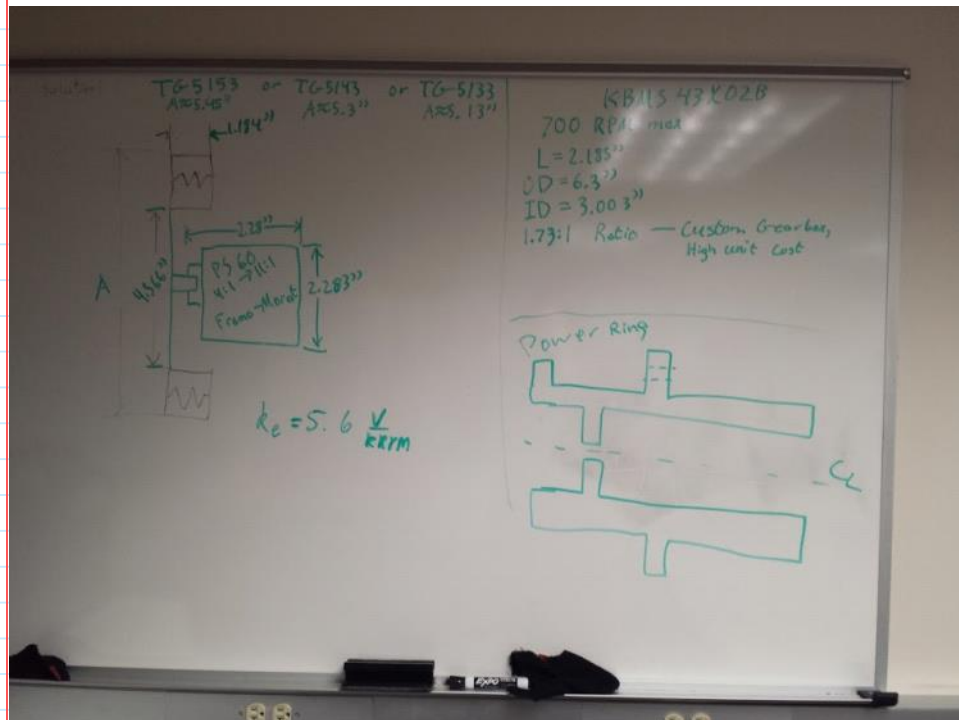 Solution:
TG-5153 or TG-5143 or TG-5133
A≈5.45" A≈5.3" A≈5.13"
1.184"
2.28"
A
4.366"
PS 60
4:1→11:1
Framo-Morat
2.283"
ke = 5.6 V/kRPM
KBMS 43X02B
700 RPM max
L = 2.185"
OD = 6.3"
ID = 3.003"
1.73:1 Ratio — Custom Gearbox,
High unit cost
Power Ring
CL
EXPO